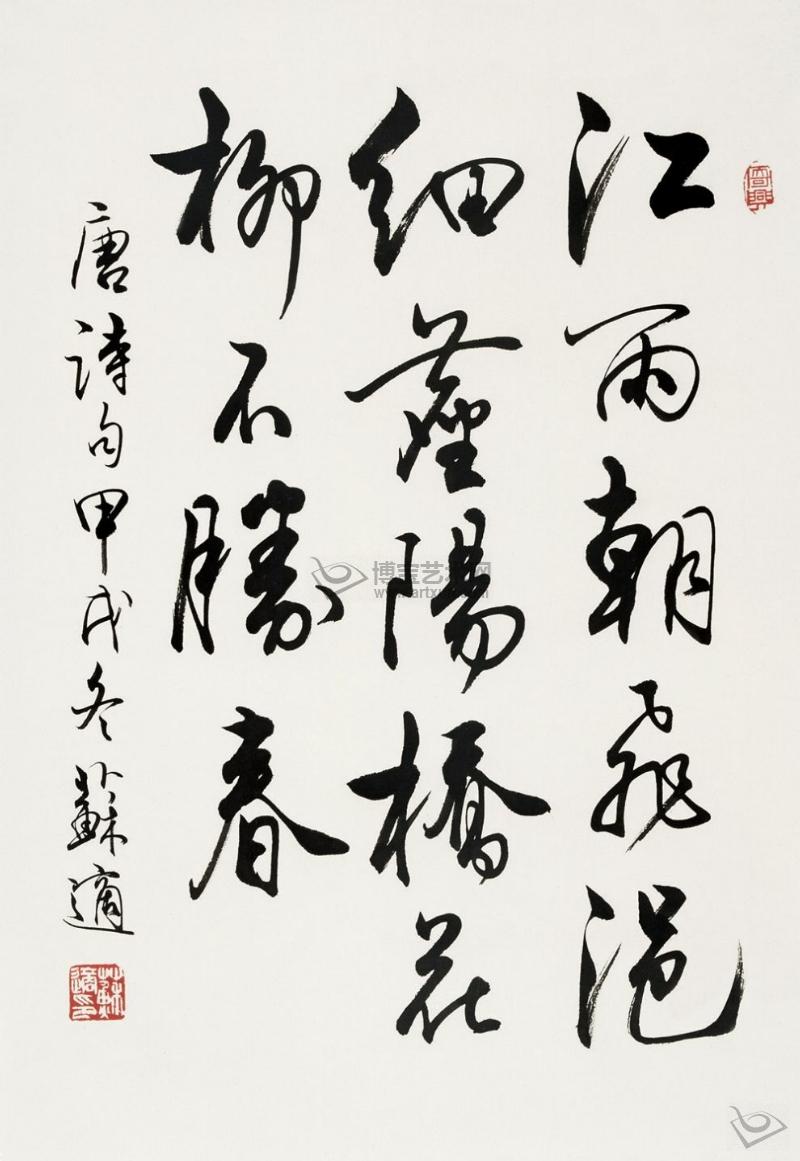 江雨朝飛浥
細塵陽橋花
柳不勝春
唐詩句甲戌冬蘇適
蘇適印
博宝艺术网